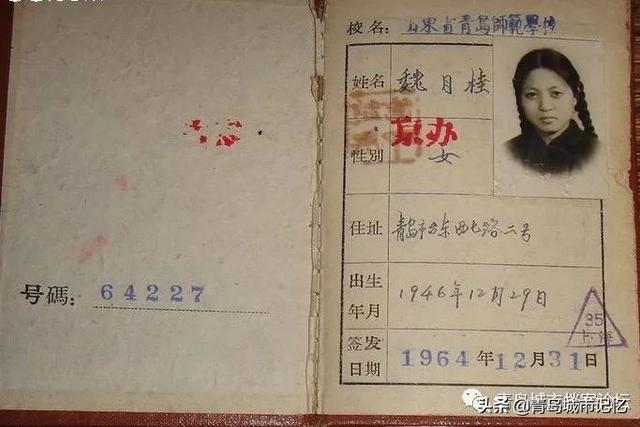 号碼: 64227
校名: 山东省青岛師範學校
姓名 魏月桂
京办
性別 女
住址 青島市台东西七路二号
出生年月 1946年12月29日
签发日期 1964年12月31日
35
上海
青岛城市档案论坛
头条@青岛城市记忆